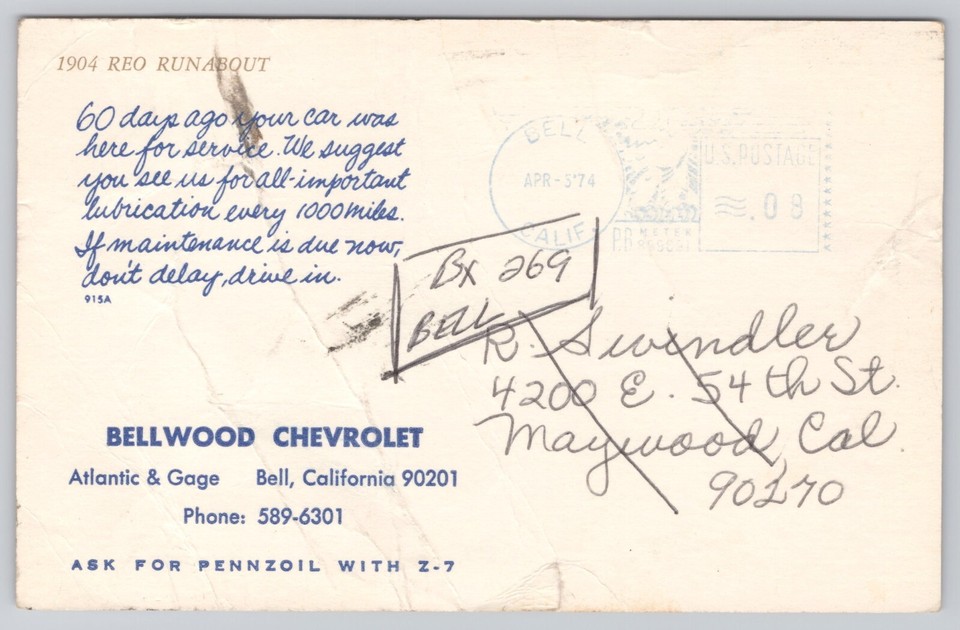 1904 REO RUNABOUT
60 days ago your car was
here for service. We suggest
you see us for all-important
lubrication every 1000 miles.
If maintenance is due now,
don't delay, drive in.
915A
BELL
APR-5'74
CALIF.
U.S. POSTAGE
.08
P.B. METER
Bx 269
BELL
R. Swindler
4200 E. 54th St.
Maywood, Cal
90270
BELLWOOD CHEVROLET
Atlantic & Gage Bell, California 90201
Phone: 589-6301
ASK FOR PENNZOIL WITH Z-7